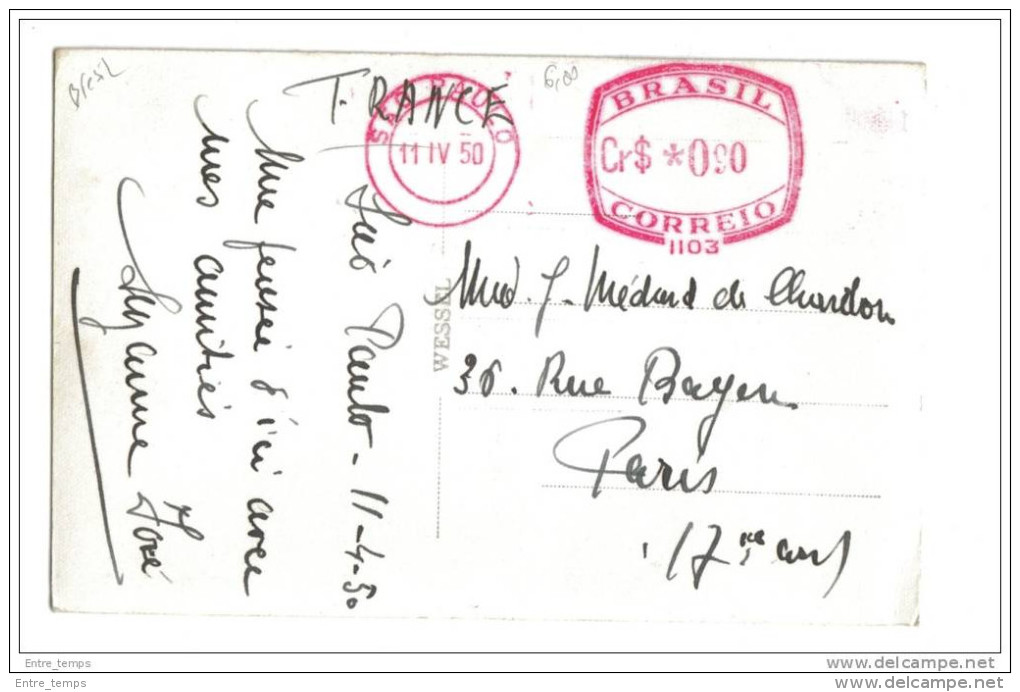 Brésil
6,00
FRANCE
SÃO PAULO
11 IV 50
BRASIL
Cr$ *0,90
CORREIO
1103
São Paulo - 11-4-50
Une pensée d'ici avec
mes amitiés
Suzanne José
WESSEL
J. Médard de Chardon
36. Rue Bayen
Paris
17
Entre_temps
www.delcampe.net
Entre_temps
www.delcampe.net